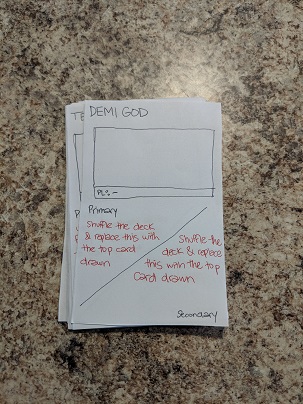 DEMI GOD
PL: -
Primary
Shuffle the deck
& replace this with
the top card
drawn
Shuffle the
deck & replace
this with the top
card drawn
Secondary